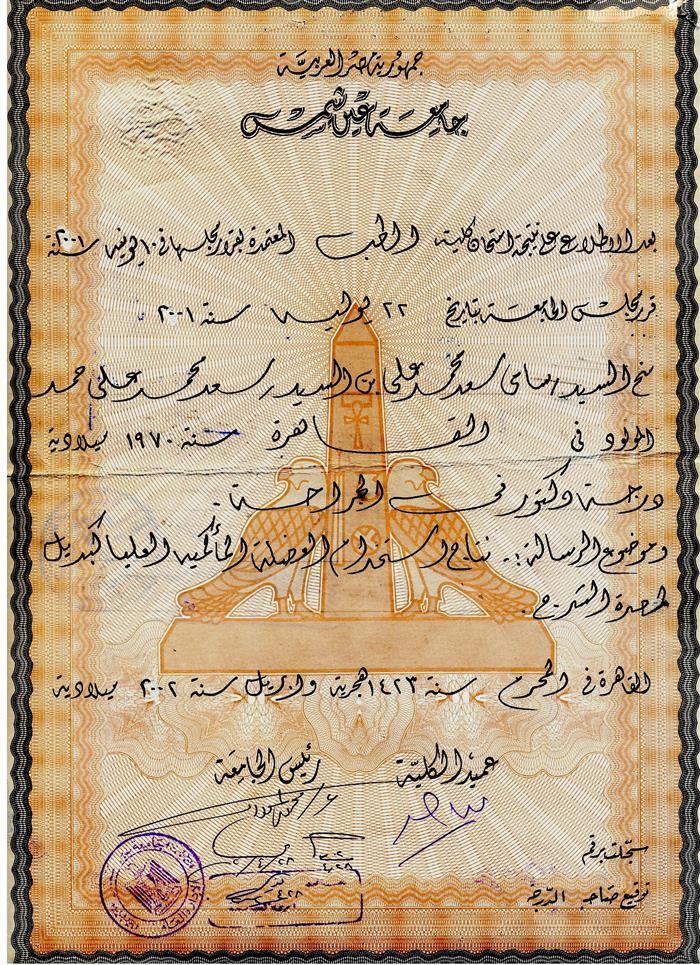 جمهورية مصر العربية
جامعة عين شمس
بعد الاطلاع على نتيجة امتحان كلية الطب المعتمدة بقرار مجلسها في ١٠ يونيه سنة ٢٠٠١
قرر مجلس الجامعة بتاريخ ٢٢ يوليه سنة ٢٠٠١
منح السيد / سامى سعد محمد على بن السيد / سعد محمد على حمد
المولود في القاهرة سنة ١٩٧٠ ميلادية
درجة دكتور في الجراحة .
وموضوع الرسالة :. نتائج استخدام العضلة المأكمية العليا كبديل
لمصرة الشرج .
القاهرة في المحرم سنة ١٤٢٣ هجرية وابريل سنة ٢٠٠٢ ميلادية
عميد الكلية رئيس الجامعة
سجلت برقم
توقيع صاحب الدرجة